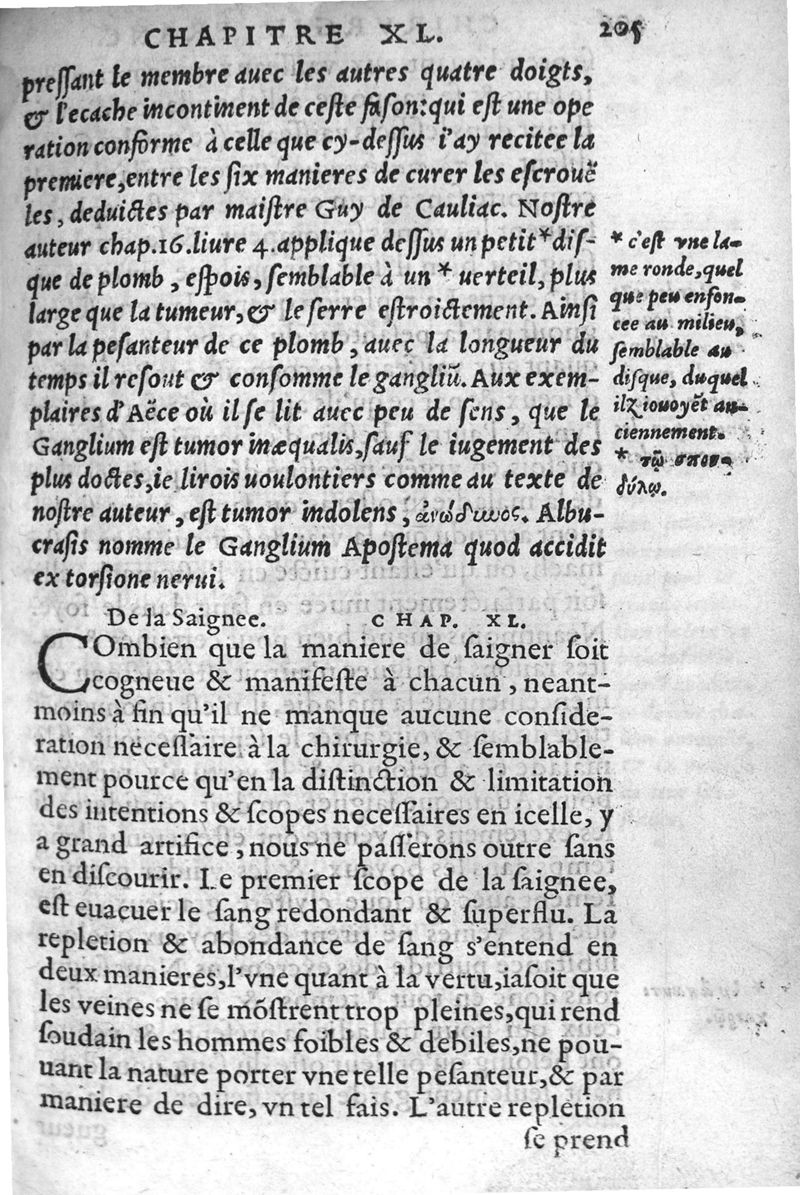 CHAPITRE XL. 205
preſſant le membre auec les autres quatre doigts,
& l'ecache incontinent de ceſte faſon: qui eſt une ope
ration conforme à celle que cy-deſſus i'ay recitee la
premiere, entre les ſix manieres de curer les eſcrouë
les, deduictes par maiſtre Guy de Cauliac. Noſtre
auteur chap. 16. liure 4. applique deſſus un petit * diſ-
que de plomb, eſpois, ſemblable à un * uerteil, plus
large que la tumeur, & le ſerre eſtroictement. Ainſi
par la peſanteur de ce plomb, auec la longueur du
temps il reſout & conſomme le gangliũ. Aux exem-
plaires d'Aëce où il ſe lit auec peu de ſens, que le
Ganglium eſt tumor inæqualis, ſauf le iugement des
plus doctes, ie lirois uoulontiers comme au texte de
noſtre auteur, eſt tumor indolens, ἀνώδυνος. Albu-
craſis nomme le Ganglium Apoſtema quod accidit
ex torſione nerui.
* c'eſt vne la-
me ronde, quel
que peu enfon-
cee au milieu,
ſemblable au
diſque, duquel
ilz iouoyẽt an-
ciennement.
* τῶ σπον-
δύλῳ.
De la Saignee. CHAP. XL.
COmbien que la maniere de ſaigner ſoit
cogneue & manifeſte à chacun, neant-
moins à fin qu'il ne manque aucune conſide-
ration neceſſaire à la chirurgie, & ſemblable-
ment pource qu'en la diſtinction & limitation
des intentions & ſcopes neceſſaires en icelle, y
a grand artifice, nous ne paſſerons outre ſans
en diſcourir. Le premier ſcope de la ſaignee,
eſt euacuer le ſang redondant & ſuperflu. La
repletion & abondance de ſang s'entend en
deux manieres, l'vne quant à la vertu, iaſoit que
les veines ne ſe mõſtrent trop pleines, qui rend
ſoudain les hommes foibles & debiles, ne pou-
uant la nature porter vne telle peſanteur, & par
maniere de dire, vn tel fais. L'autre repletion
ſe prend